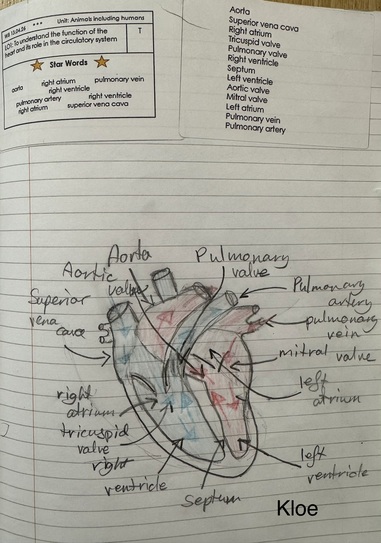 WB 10.04.26 *** Unit: Animals including humans
LO: To understand the function of the
heart and its role in the circulatory system
T
Star Words
right atrium pulmonary vein
aorta right ventricle
pulmonary artery right ventricle
right atrium superior vena cava
Aorta
Superior vena cava
Right atrium
Tricuspid valve
Pulmonary valve
Right ventricle
Septum
Left ventricle
Aortic valve
Mitral valve
Left atrium
Pulmonary vein
Pulmonary artery
Aorta
Aortic
valve
Pulmonary
valve
Superior
vena
cava
Pulmonary
artery
pulmonary
vein
mitral valve
left
atrium
right
atrium
tricuspid
valve
right
ventricle
left
ventricle
Septum
Kloe